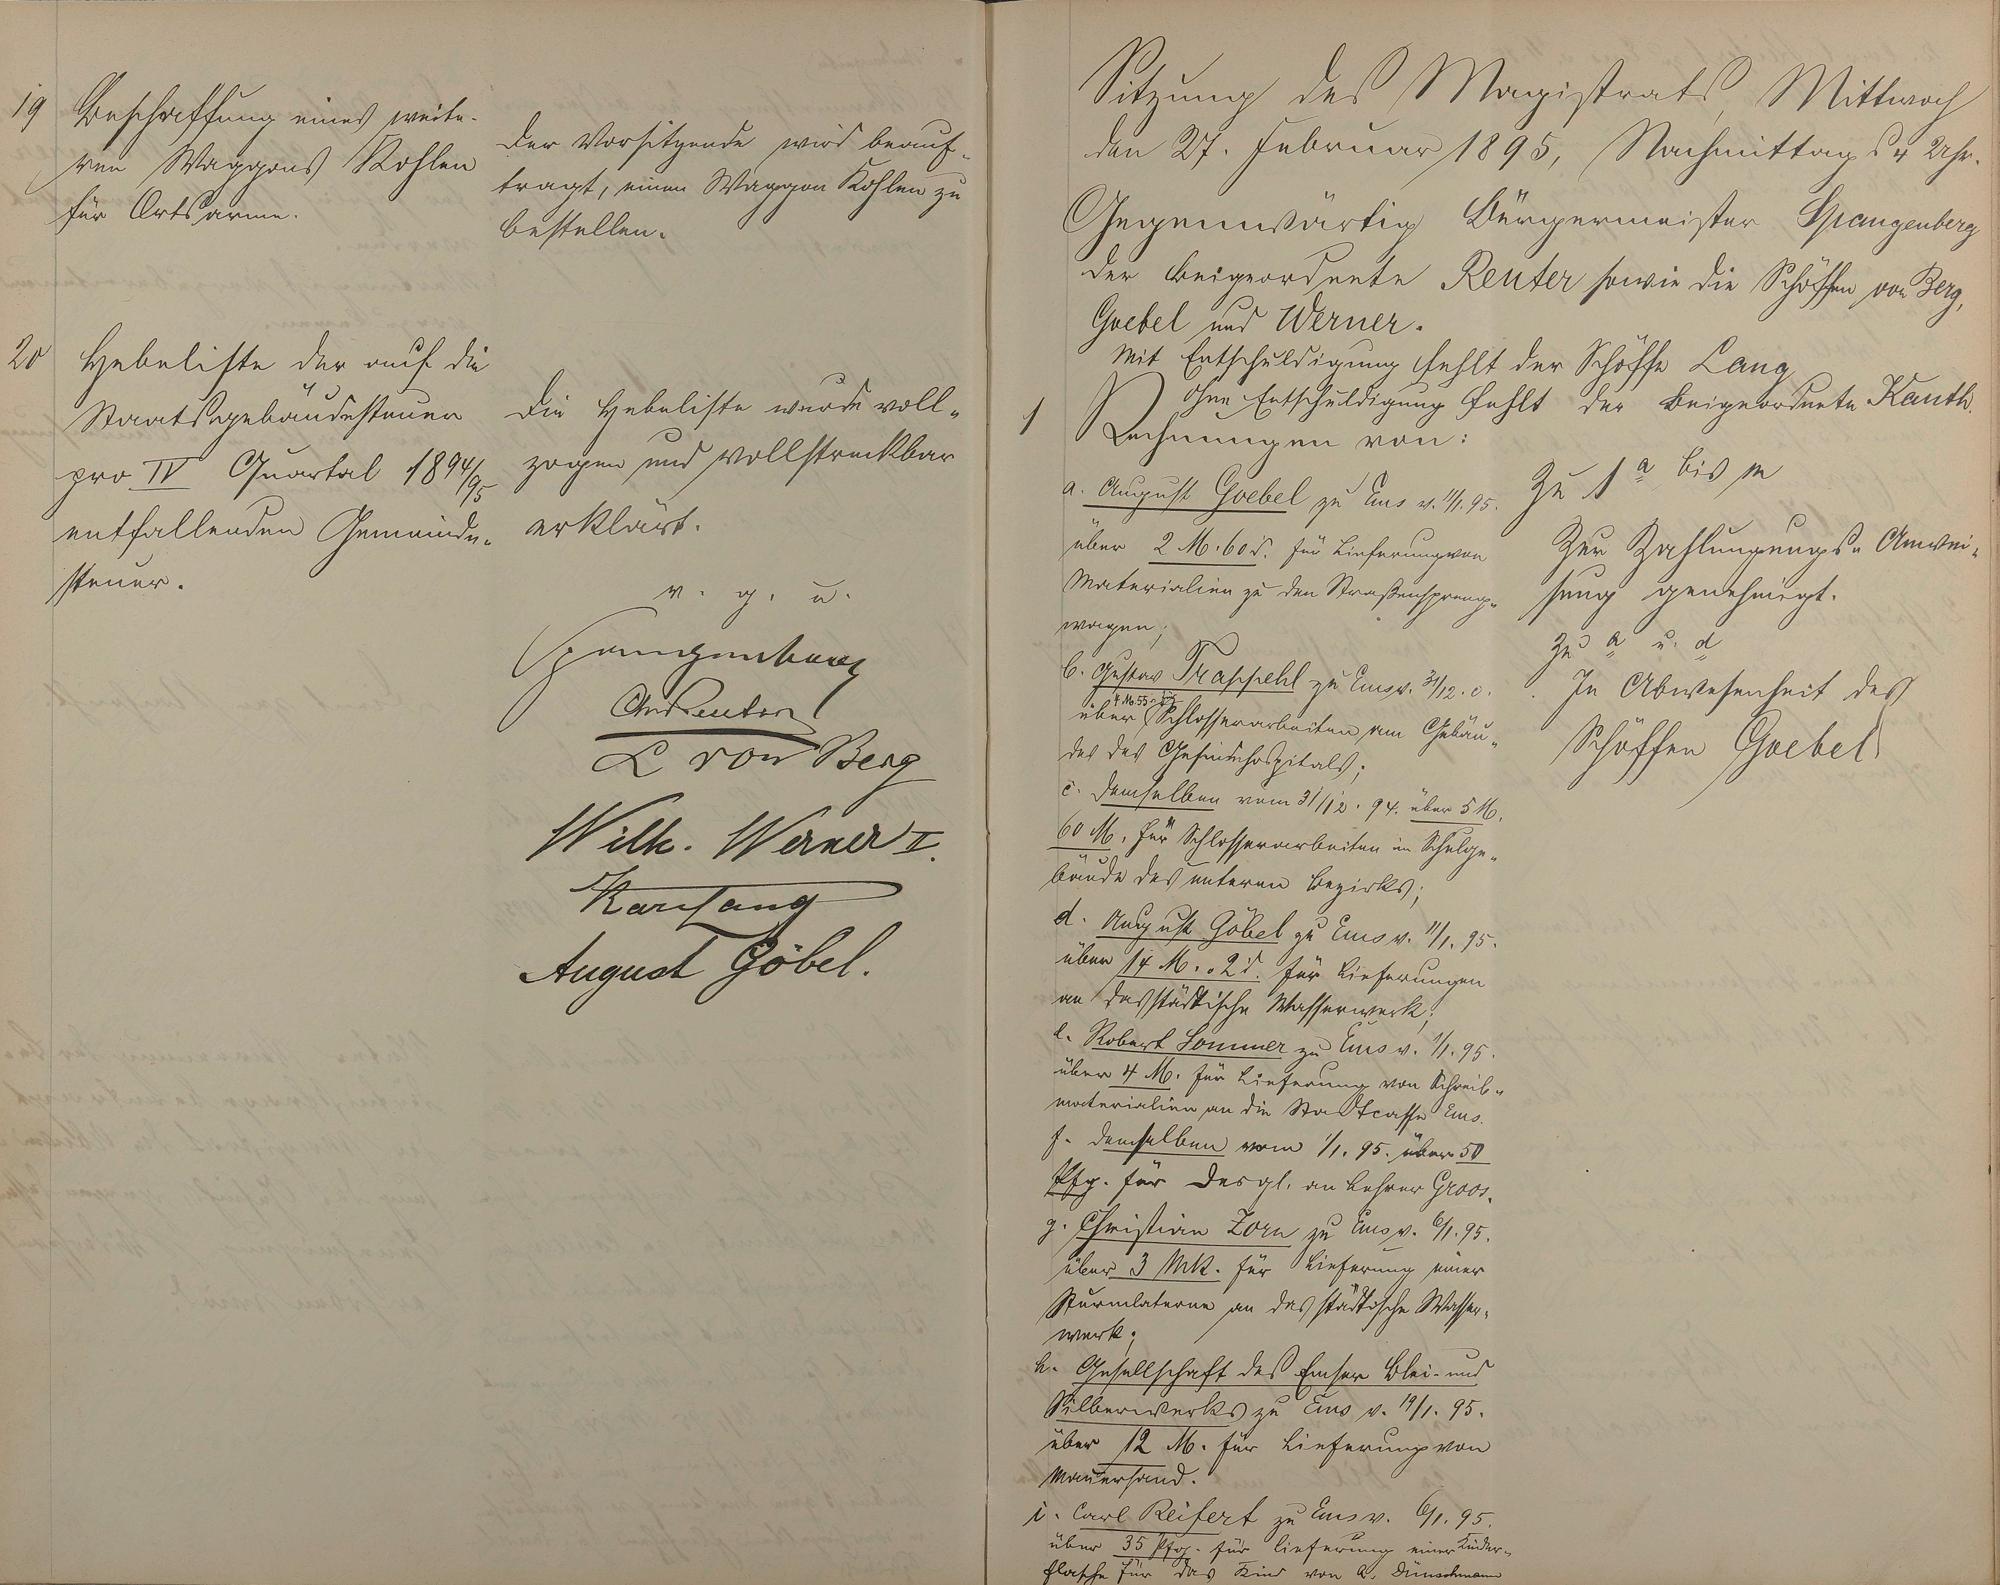 19
Beschaffung eines weite-
ren Waggons Kohlen
für Ortsarme.
Der Vorsitzende wird beauf-
tragt, einen Waggon Kohlen zu
bestellen.
20
Hebeliste der auf die
Staatsgebäudesteuer
pro IV Quartal 1894/95
entfallenden Gemeinde-
steuer.
Die Hebeliste wurde voll-
zogen und vollstreckbar
erklärt.
v. g. u.
Spangenberg
Reuter
L von Berg
Wilh. Werner II.
Karl Lang
August Göbel.
Sitzung des Magistrats, Mittwoch
den 27. Februar 1895, Nachmittags 4 Uhr.
Gegenwärtig Bürgermeister Spangenberg
der Beigeordnete Reuter sowie die Schöffen von Berg,
Goebel und Werner.
Mit Entschuldigung fehlt der Schöffe Lang
Ohne Entschuldigung fehlt der Beigeordnete Kauth.
1
Rechnungen von:
a. August Goebel zu Ems v. 11/1. 95.
über 2 M. 60 d. für Lieferung von
Materialien zu den Straßenspreng-
wagen;
b. Gustav Trappehl zu Ems v. 31/12. c.
4 M. 55 d. für
über Schlosserarbeiten am Gebäu-
des des Gesindehospitals;
c. demselben vom 31/12. 94. über 5 M.
60 M. für Schlosserarbeiten im Schulge-
bäude des unteren Bezirks;
d. August Göbel zu Ems v. 11/1. 95.
über 14 M. 02 d. für Lieferungen
an das städtische Wasserwerk;
e. Robert Sommer zu Ems v. 1/1. 95.
über 4 M. für Lieferung von Schreib-
materialien an die Stadtcasse Ems.
f. demselben vom 1/1. 95. über 50
Pfg. für desgl. an Lehrer Groos.
g. Christian Zorn zu Ems v. 6/1. 95.
über 3 Mk. für Lieferung einer
Sturmlaterne an das städtische Wasser-
werk;
h. Gesellschaft des Emser Blei- und
Silberwerks zu Ems v. 19/1. 95.
über 12 M. für Lieferung von
Mauersand.
i. Carl Reifert zu Ems v. 6/1. 95.
über 35 Pfg. für Lieferung einer Kinder-
flasche für das Kind von A. Dünschmann
Zu 1 a bis m
Zur Zahlungungs-Anwei-
sung genehmigt.
Zu a u. d
In Abwesenheit des
Schöffen Goebel